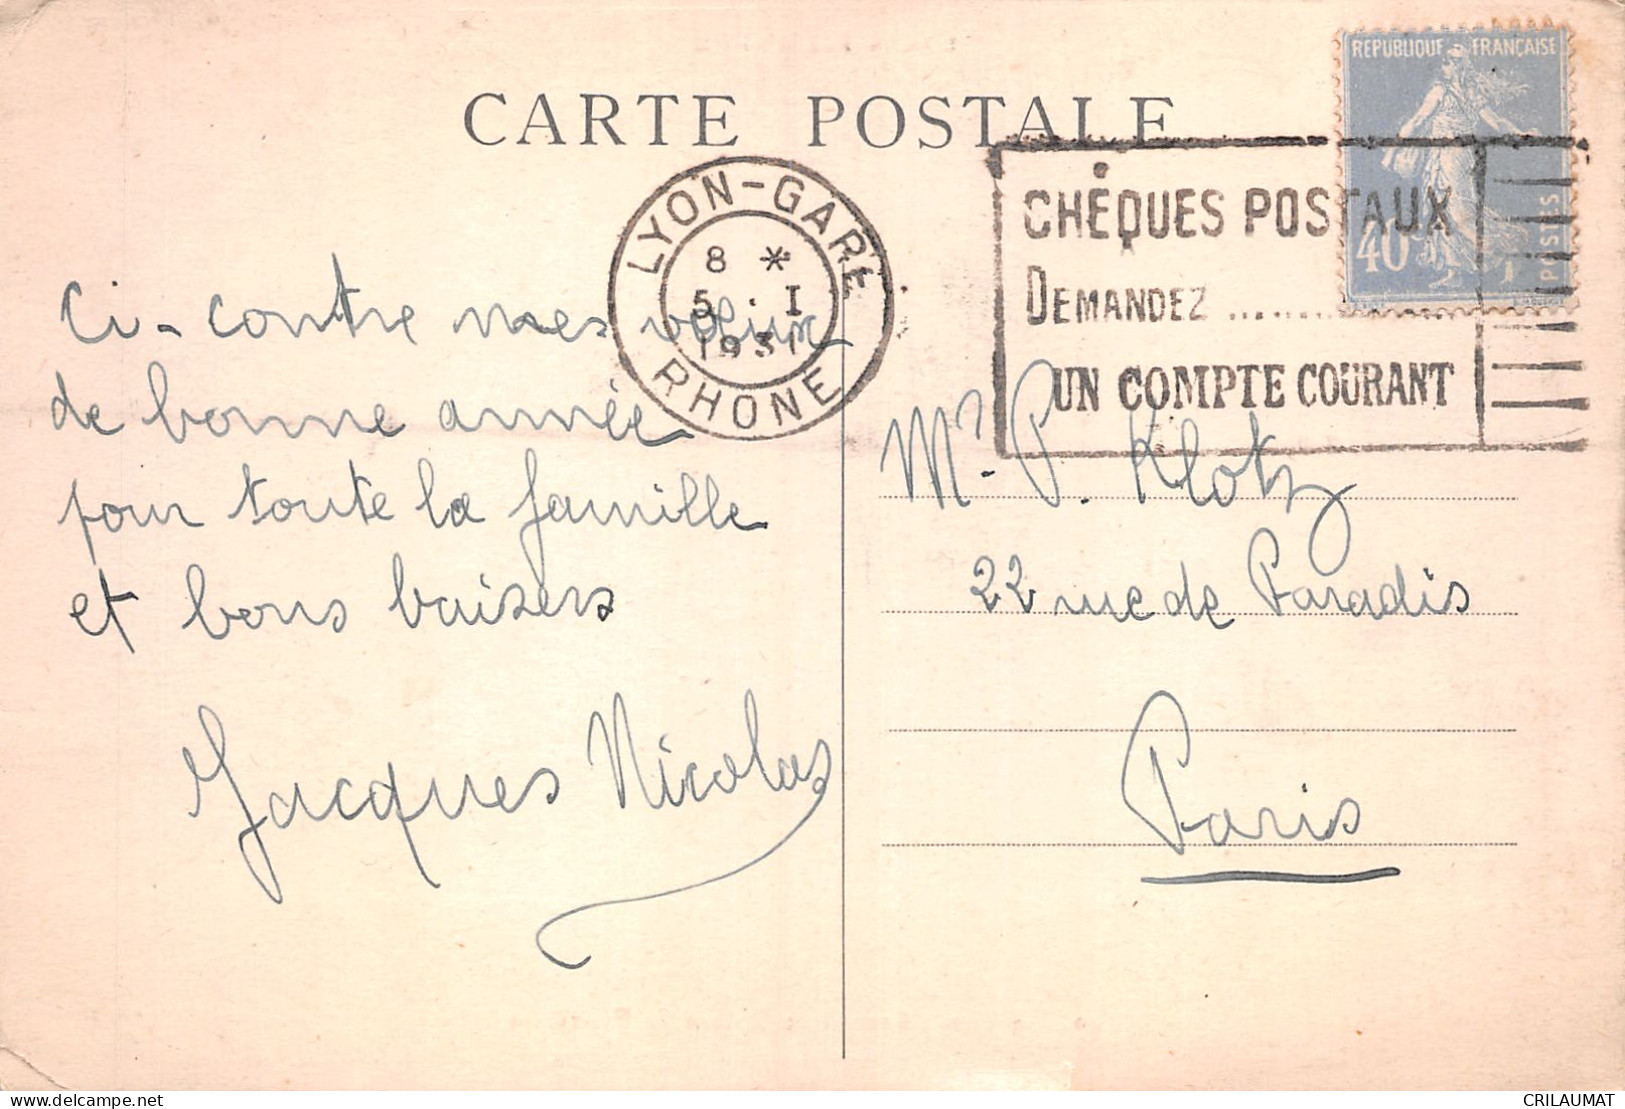 CARTE POSTALE
REPUBLIQUE FRANÇAISE
40c
POSTES
LYON-GARE
8 *
5 . I
1931
RHONE
CHÈQUES POSTAUX
DEMANDEZ ..............
UN COMPTE COURANT
Ci-contre mes vœux
de bonne année
pour toute la famille
et bons baisers
Jacques Nicolas
Mr. P. Klotz
22 rue de Paradis
Paris
delcampe.net
CRILAUMAT